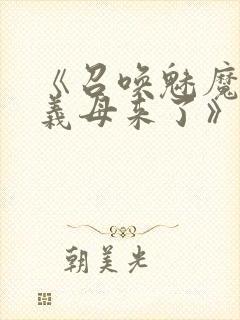 《召唤魅魔
义母来了》
朝美光